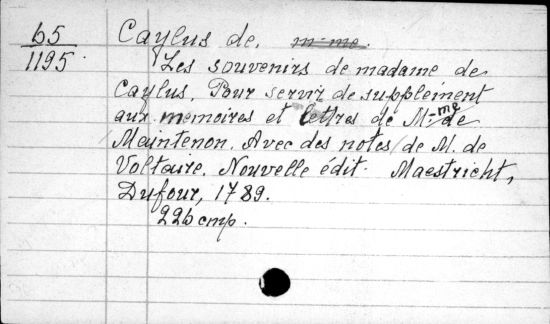 65
1195.
Caylus de. m-me.
Les souvenirs de madame de
Caylus. Pour servir de supplément
aux memoires et lettres de M-me de
Maintenon. Avec des notes de M. de
Voltaire. Nouvelle édit. Maestricht,
Dufour, 1789.
226 cmp.